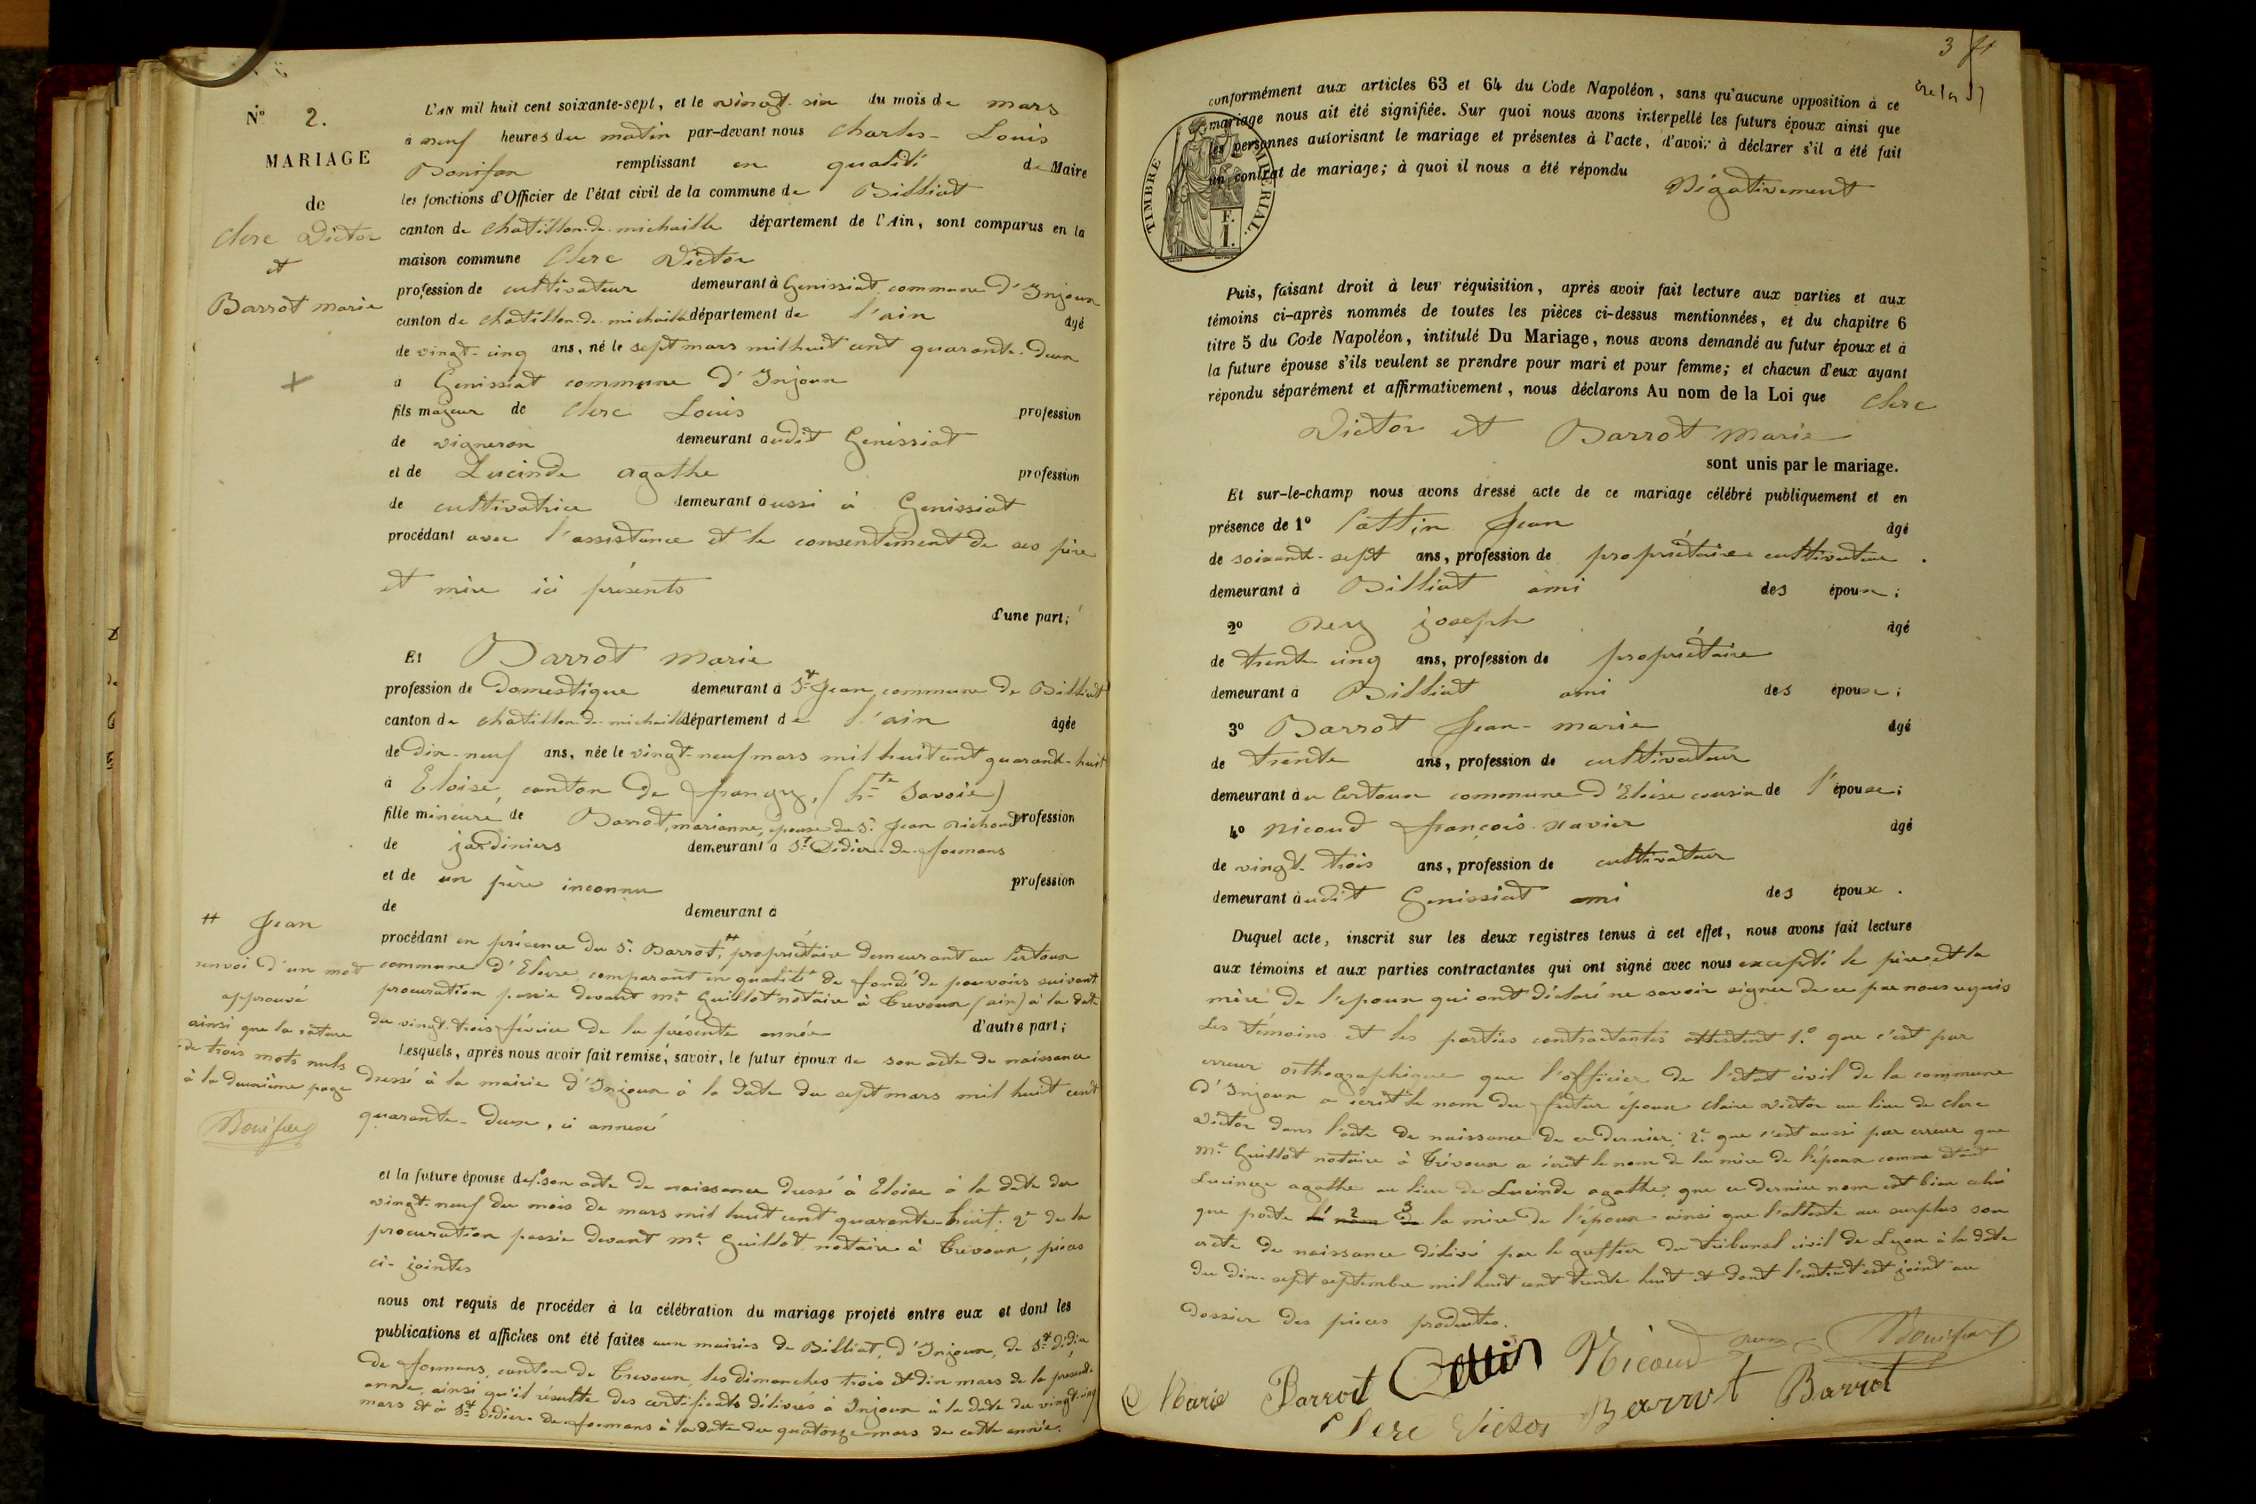 N° 2.
MARIAGE
de
Clerc Victor
et
Barrot marie
L'AN mil huit cent soixante-sept, et le vingt-six du mois de mars
à neuf heures du matin par-devant nous Charles-Louis
Bonifax remplissant en qualité de Maire
les fonctions d'Officier de l'état civil de la commune de Billiat
canton de Chatillon-de-michaille département de l'Ain, sont comparus en la
maison commune Clerc Victor
profession de cultivateur demeurant à Genissiat commune d'Injoux
canton de Chatillon-de-michaille département de l'ain âgé
de vingt-cinq ans, né le sept mars mil huit cent quarante-deux
à Genissiat commune d'Injoux
fils majeur de Clerc Louis profession
de vigneron demeurant audit Genissiat
et de Lucinde agathe profession
de cultivatrice demeurant aussi à Genissiat
procédant avec l'assistance et le consentement de ses père
et mère ici présents
d'une part;
Et Barrot Marie
profession de domestique demeurant à St Jean, commune de Billiat
canton de Chatillon-de-michaille département de l'ain âgée
de dix-neuf ans, née le vingt-neuf mars mil huit cent quarante-huit
à Eloise, canton de frangy, (hte Savoie)
fille mineure de Barrot, marianne, épouse du Sr Jean profession
de jardiniers demeurant à St Didier-de-formans
et de un père inconnu profession
de demeurant à
procédant en présence du Sr Barrot, # propriétaire demeurant au Certoux
commune d'Eloise, comparant en qualité de fondé de pouvoirs suivant
procuration passée devant Me Guillot notaire à Trevoux (ain) à la date
du vingt-trois février de la présente année d'autre part;
# Jean
renvoi d'un mot
approuvé
ainsi que la rature
de trois mots nuls
à la deuxième page
Lesquels, après nous avoir fait remise, savoir, le futur époux de son acte de naissance
dressé à la mairie d'Injoux à la date du sept mars mil huit cent
quarante-deux, ci annexé
et la future épouse de 1° son acte de naissance dressé à Eloise à la date du
vingt-neuf du mois de mars mil huit cent quarante-huit. 2° de la
procuration passée devant Me Guillot notaire à Trevoux, pièces
ci-jointes
nous ont requis de procéder à la célébration du mariage projeté entre eux et dont les
publications et affiches ont été faites aux mairies de Billiat, d'Injoux, de St didier
de formans, canton de Trevoux, les dimanches trois et dix mars de la présente
année, ainsi qu'il résulte des certificats délivrés à Injoux à la date du vingt-cinq
mars et à St didier-de-formans à la date du quatorze mars de cette année.
3
conformément aux articles 63 et 64 du Code Napoléon, sans qu'aucune opposition à ce
mariage nous ait été signifiée. Sur quoi nous avons interpellé les futurs époux ainsi que
les personnes autorisant le mariage et présentes à l'acte, d'avoir à déclarer s'il a été fait
un contrat de mariage; à quoi il nous a été répondu
Négativement
TIMBRE IMPÉRIAL.
Puis, faisant droit à leur réquisition, après avoir fait lecture aux parties et aux
témoins ci-après nommés de toutes les pièces ci-dessus mentionnées, et du chapitre 6
titre 5 du Code Napoléon, intitulé Du Mariage, nous avons demandé au futur époux et à
la future épouse s'ils veulent se prendre pour mari et pour femme; et chacun d'eux ayant
répondu séparément et affirmativement, nous déclarons Au nom de la Loi que Clerc
Victor et Barrot Marie
sont unis par le mariage.
Et sur-le-champ nous avons dressé acte de ce mariage célébré publiquement et en
présence de 1° Jean âgé
de soixante-sept ans, profession de propriétaire cultivateur
demeurant à Billiat ami des époux;
2° joseph âgé
de trente cinq ans, profession de propriétaire
demeurant à Billiat ami des époux;
3° Barrot Jean-marie âgé
de trente ans, profession de cultivateur
demeurant au Certoux commune d'Eloise cousin de l'épouse;
4° Nicoud françois-xavier âgé
de vingt-trois ans, profession de cultivateur
demeurant audit Genissiat ami des époux.
Duquel acte, inscrit sur les deux registres tenus à cet effet, nous avons fait lecture
aux témoins et aux parties contractantes qui ont signé avec nous excepté le père et la
mère de l'époux qui ont déclaré ne savoir signer de ce par nous requis
Les témoins et les parties contractantes attestent 1° que c'est par
erreur orthographique que l'officier de l'état civil de la commune
d'Injoux a écrit le nom du futur époux Claire Victor au lieu de Clerc
Victor dans l'acte de naissance de ce dernier; 2° que c'est aussi par erreur que
Me Guillot notaire à Trévoux a écrit le nom de la mère de l'époux comme étant
agathe au lieu de Lucinde agathe, que ce dernier nom est bien celui
que porte la mère de l'époux ainsi que l'atteste au surplus son
acte de naissance délivré par le greffier du tribunal civil de Lyon à la date
du dix-sept septembre mil huit cent trente huit et dont l'extrait est joint au
dossier des pièces produites.
Nicoud
Marie Barrot
Clerc Victor Barrot Barrot